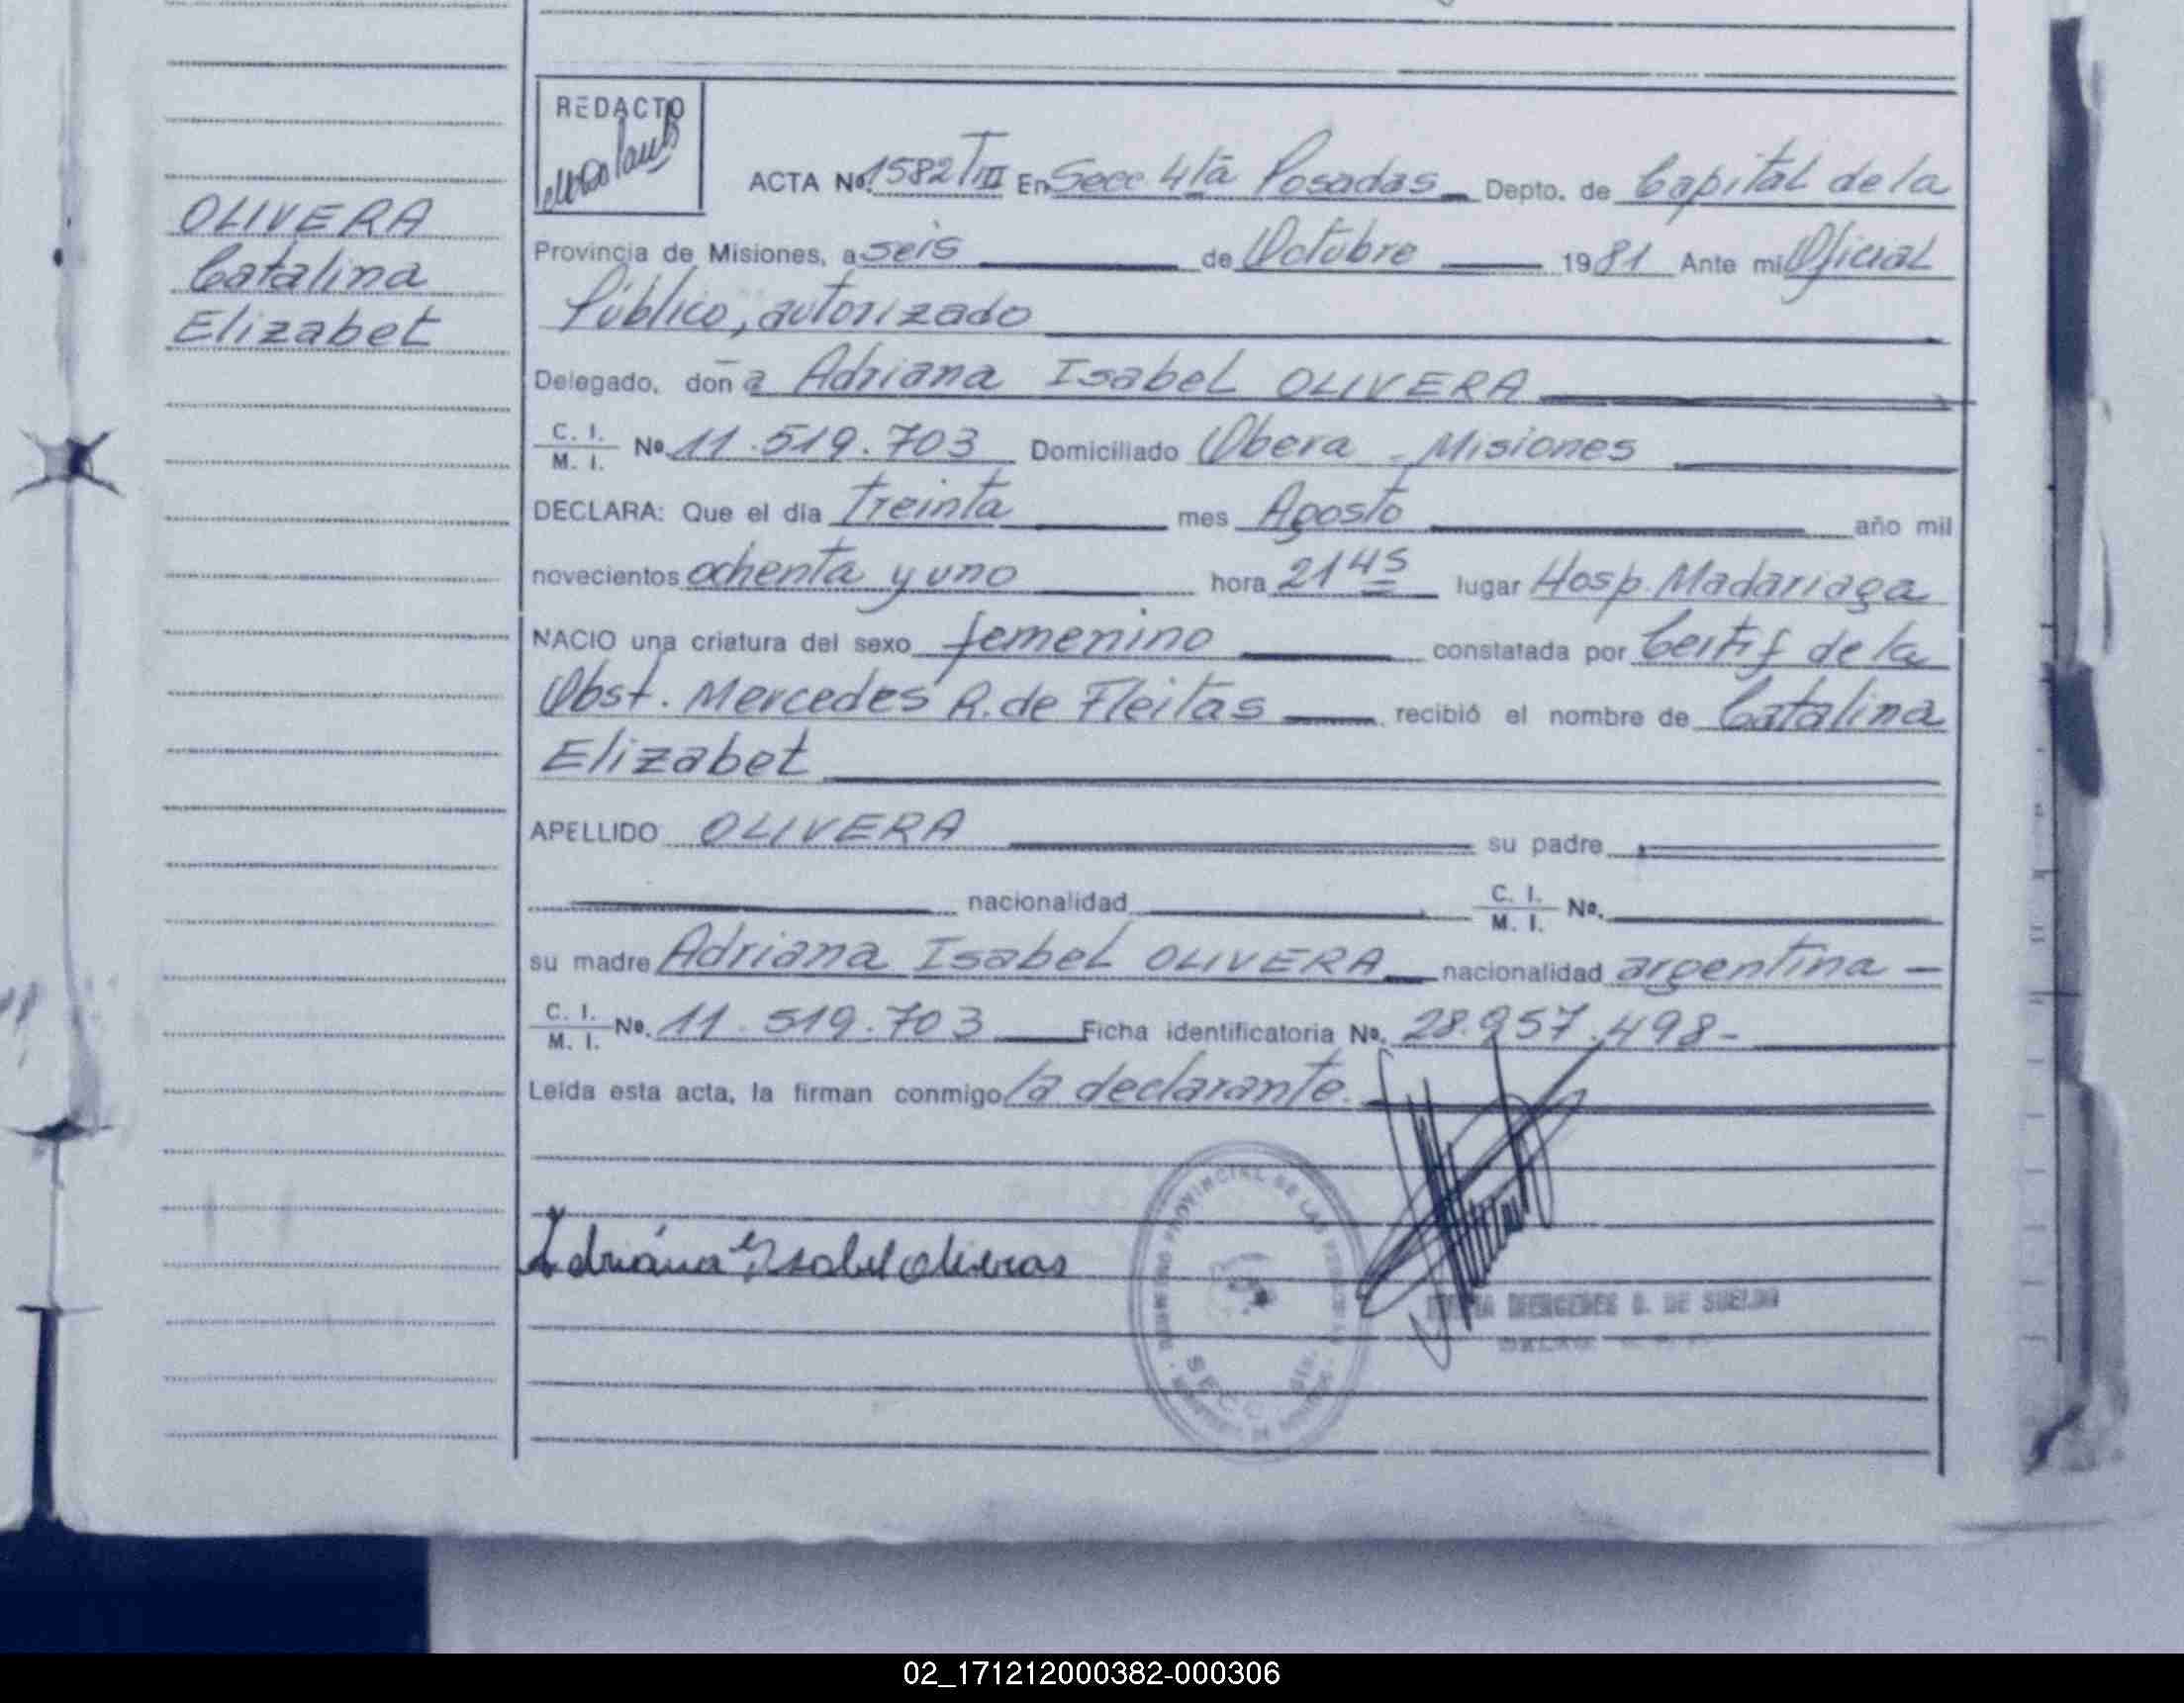 REDACTO
ACTA No. 1582 T III En Secc 4ta Posadas Depto. de Capital de la
OLIVERA
Catalina
Elizabet
Provincia de Misiones, a seis de Octubre 1981 Ante mi Oficial
Público, autorizado
Delegado, doña Adriana Isabel OLIVERA
C. I. / M. I. No. 11.519.703 Domiciliado Obera - Misiones
DECLARA: Que el día Treinta mes Agosto año mil
novecientos ochenta y uno hora 21 45 lugar Hosp. Madariaga
NACIO una criatura del sexo femenino constatada por Certif de la
Obst. Mercedes R. de Fleitas recibió el nombre de Catalina
Elizabet
APELLIDO OLIVERA su padre
nacionalidad C. I. / M. I. No.
su madre Adriana Isabel OLIVERA nacionalidad argentina -
C. I. / M. I. No. 11.519.703 Ficha identificatoria No. 28.957.498-
Leída esta acta, la firman conmigo la declarante.
PROVINCIAL DE LAS
SECC.
Adriana Isabel Oliveras
MERCEDES DE SUELDO
02_171212000382-000306